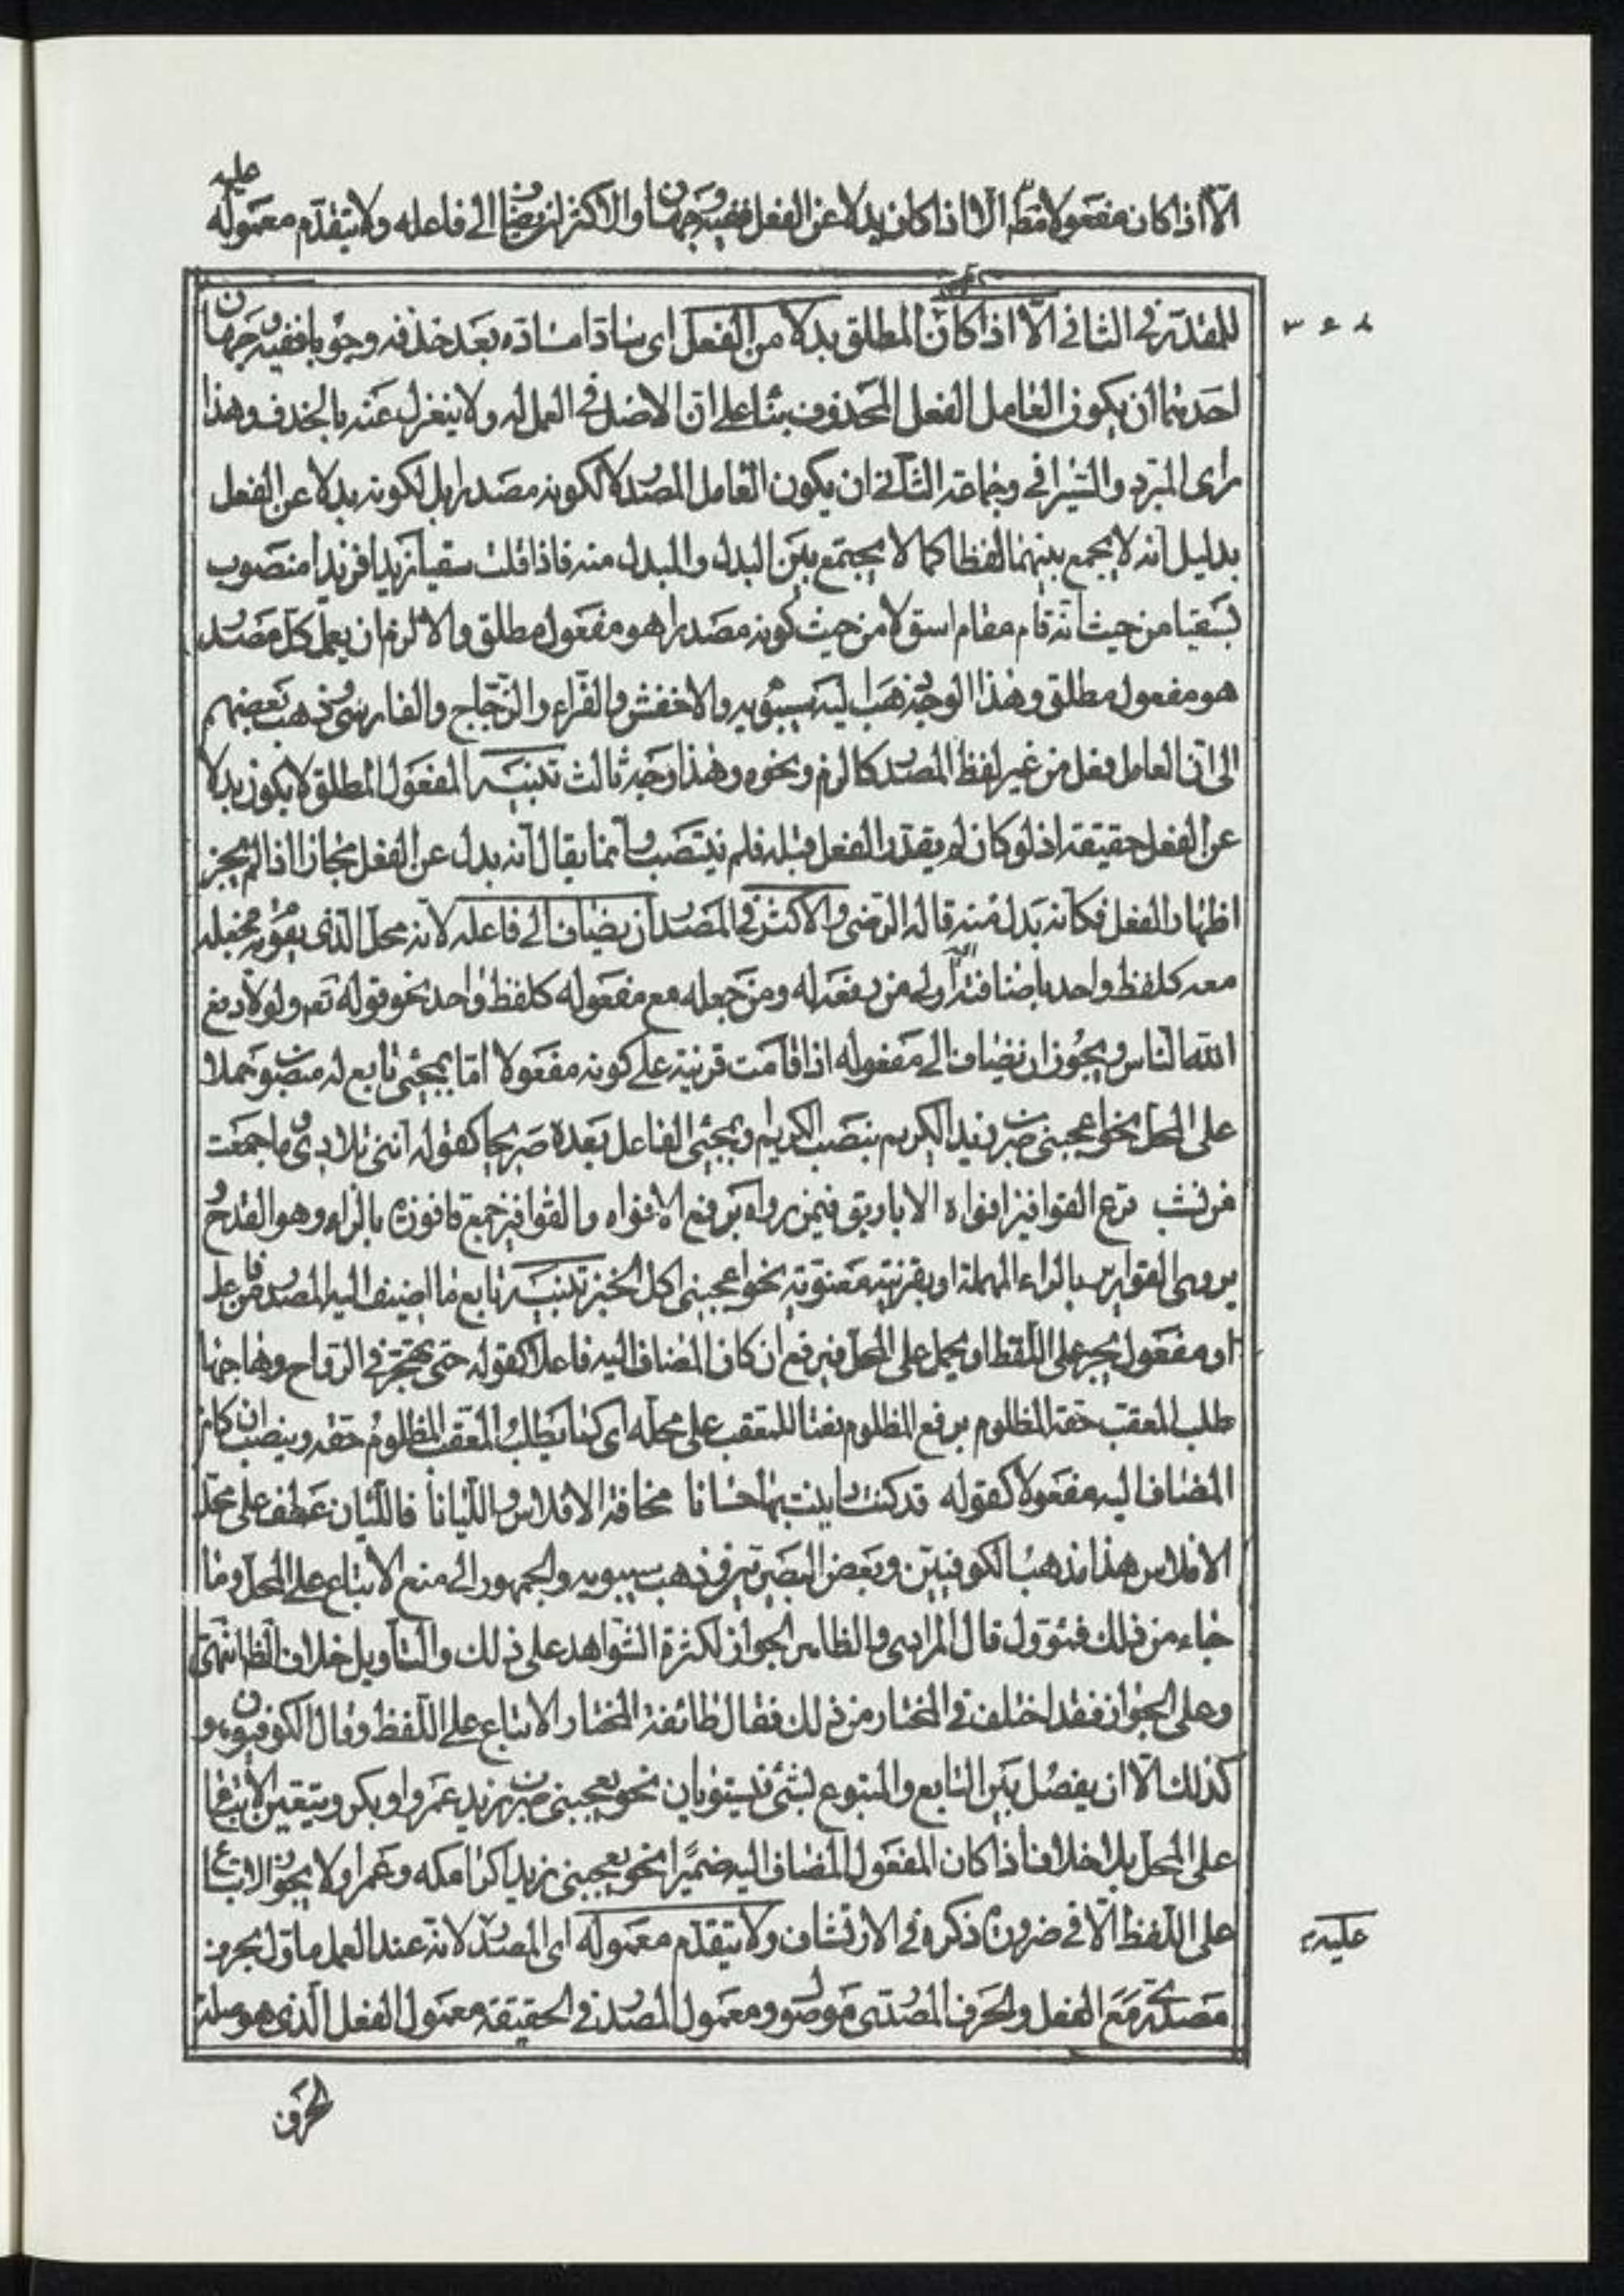 عليه
الا اذا كان مفعولا مط الا اذا كان بدلا عن الفعل ففيه وجهان والاكثر ان يضاف الى فاعله ولا يتقدم معموله
للمقدر في الثاني الا اذا كان المطلق بدلا من الفعل اى سادا مسادّه بعد حذفه وجوبا ففيه وجهان
احدهما ان يكون العامل الفعل المحذوف بناء على ان الاصل في العمل له ولا ينعزل عنه بالحذف وهذا
راى المبرد والسيرافي وجماعة الثاني ان يكون العامل المصدر لا لكونه مصدرا بل لكونه بدلا عن الفعل
بدليل انه لا يجمع بينهما لفظا كما لا يجتمع بين البدل والمبدل منه فاذا قلت سقيا زيدا فزيدا منصوب
بسقيا من حيث انه قام مقام اسق لا من حيث كونه مصدرا هو مفعول مطلق والا لزم ان يعمل كل مصدر
هو مفعول مطلق وهذا الوجه ذهب اليه سيبويه والاخفش والفراء والزجاج والفارسى وذهب بعضهم
الى ان العامل فعل من غير لفظ المصدر كالزم ونحوه وهذا وجه ثالث تنبيه المفعول المطلق لا يكون بدلا
عن الفعل حقيقة اذ لو كان لم يقدر الفعل قبله فلم ينتصب وانما يقال انه بدل عن الفعل مجازا اذا لم يجز
اظهار الفعل فكانه بدل منه قاله الرضى والاكثر في المصدر ان يضاف الى فاعله لانه محل الذى يقوم به فجعله
معه كلفظ واحد باضافته اليه اولى من رفعه له ومن جعله مع مفعوله كلفظ واحد نحو قوله تعم ولولا دفع
الله الناس ويجوز ان يضاف الى مفعوله اذا قامت قرينة على كونه مفعولا اما بمجئ تابع له منصوب حملا
على المحل نحو اعجبنى ضرب زيد الكريم بنصب الكريم وبمجئ الفاعل بعده صريحا كقوله افنى تلادى وما جمعت
من نشب قرع القوافيز افواه الاباريق فيمن رواه برفع الافواه والقوافيز جمع قافوزة بالزاء وهو القدح
يروى القوارير بالراء المهملة او بقرينة معنوية نحو اعجبنى اكل الخبز تنبيه تابع ما اضيف اليه المصدر من فاعل
او مفعول يجر على اللفظ او يحمل على المحل فيرفع ان كان المضاف اليه فاعلا كقوله حتى تهجر في الرواح وهاجها
طلب المعقب حقه المظلوم برفع المظلوم نعتا للمعقب على محله اى كما يطلب المعقب المظلوم حقه وينصب ان كان
المضاف اليه مفعولا كقوله قد كنت داينت بها حسانا مخافة الافلاس والليانا فالليان عطف على محل
الافلاس هذا مذهب الكوفيين وبعض البصريين وذهب سيبويه والجمهور الى منع الاتباع على المحل وما
جاء من ذلك فمؤول قال المرادى والظاهر الجواز لكثرة الشواهد على ذلك والتأويل خلاف الظا انتهى
وعلى الجواز فقد اختلف في المختار من ذلك فقال طائفة المختار الاتباع على اللفظ وقال الكوفيون هو
كذلك الا ان يفصل بين التابع والمتبوع بشئ فيستويان نحو يعجبنى ضرب زيد عمروا وبكر ويتعين الاتباع
على المحل بلا خلاف اذا كان المفعول المضاف اليه ضميرا نحو يعجبنى زيد اكرامكه وعمرا ولا يجوز الاتباع
على اللفظ الا في ضرورة ذكره في الارتشاف ولا يتقدم معموله اى المصدر لانه عند العمل ماول بحرف
عليه
مصدرى مع الفعل والحرف المصدرى موصول ومعمول المصدر في الحقيقة معمول الفعل الذى هو صلة
الحرف